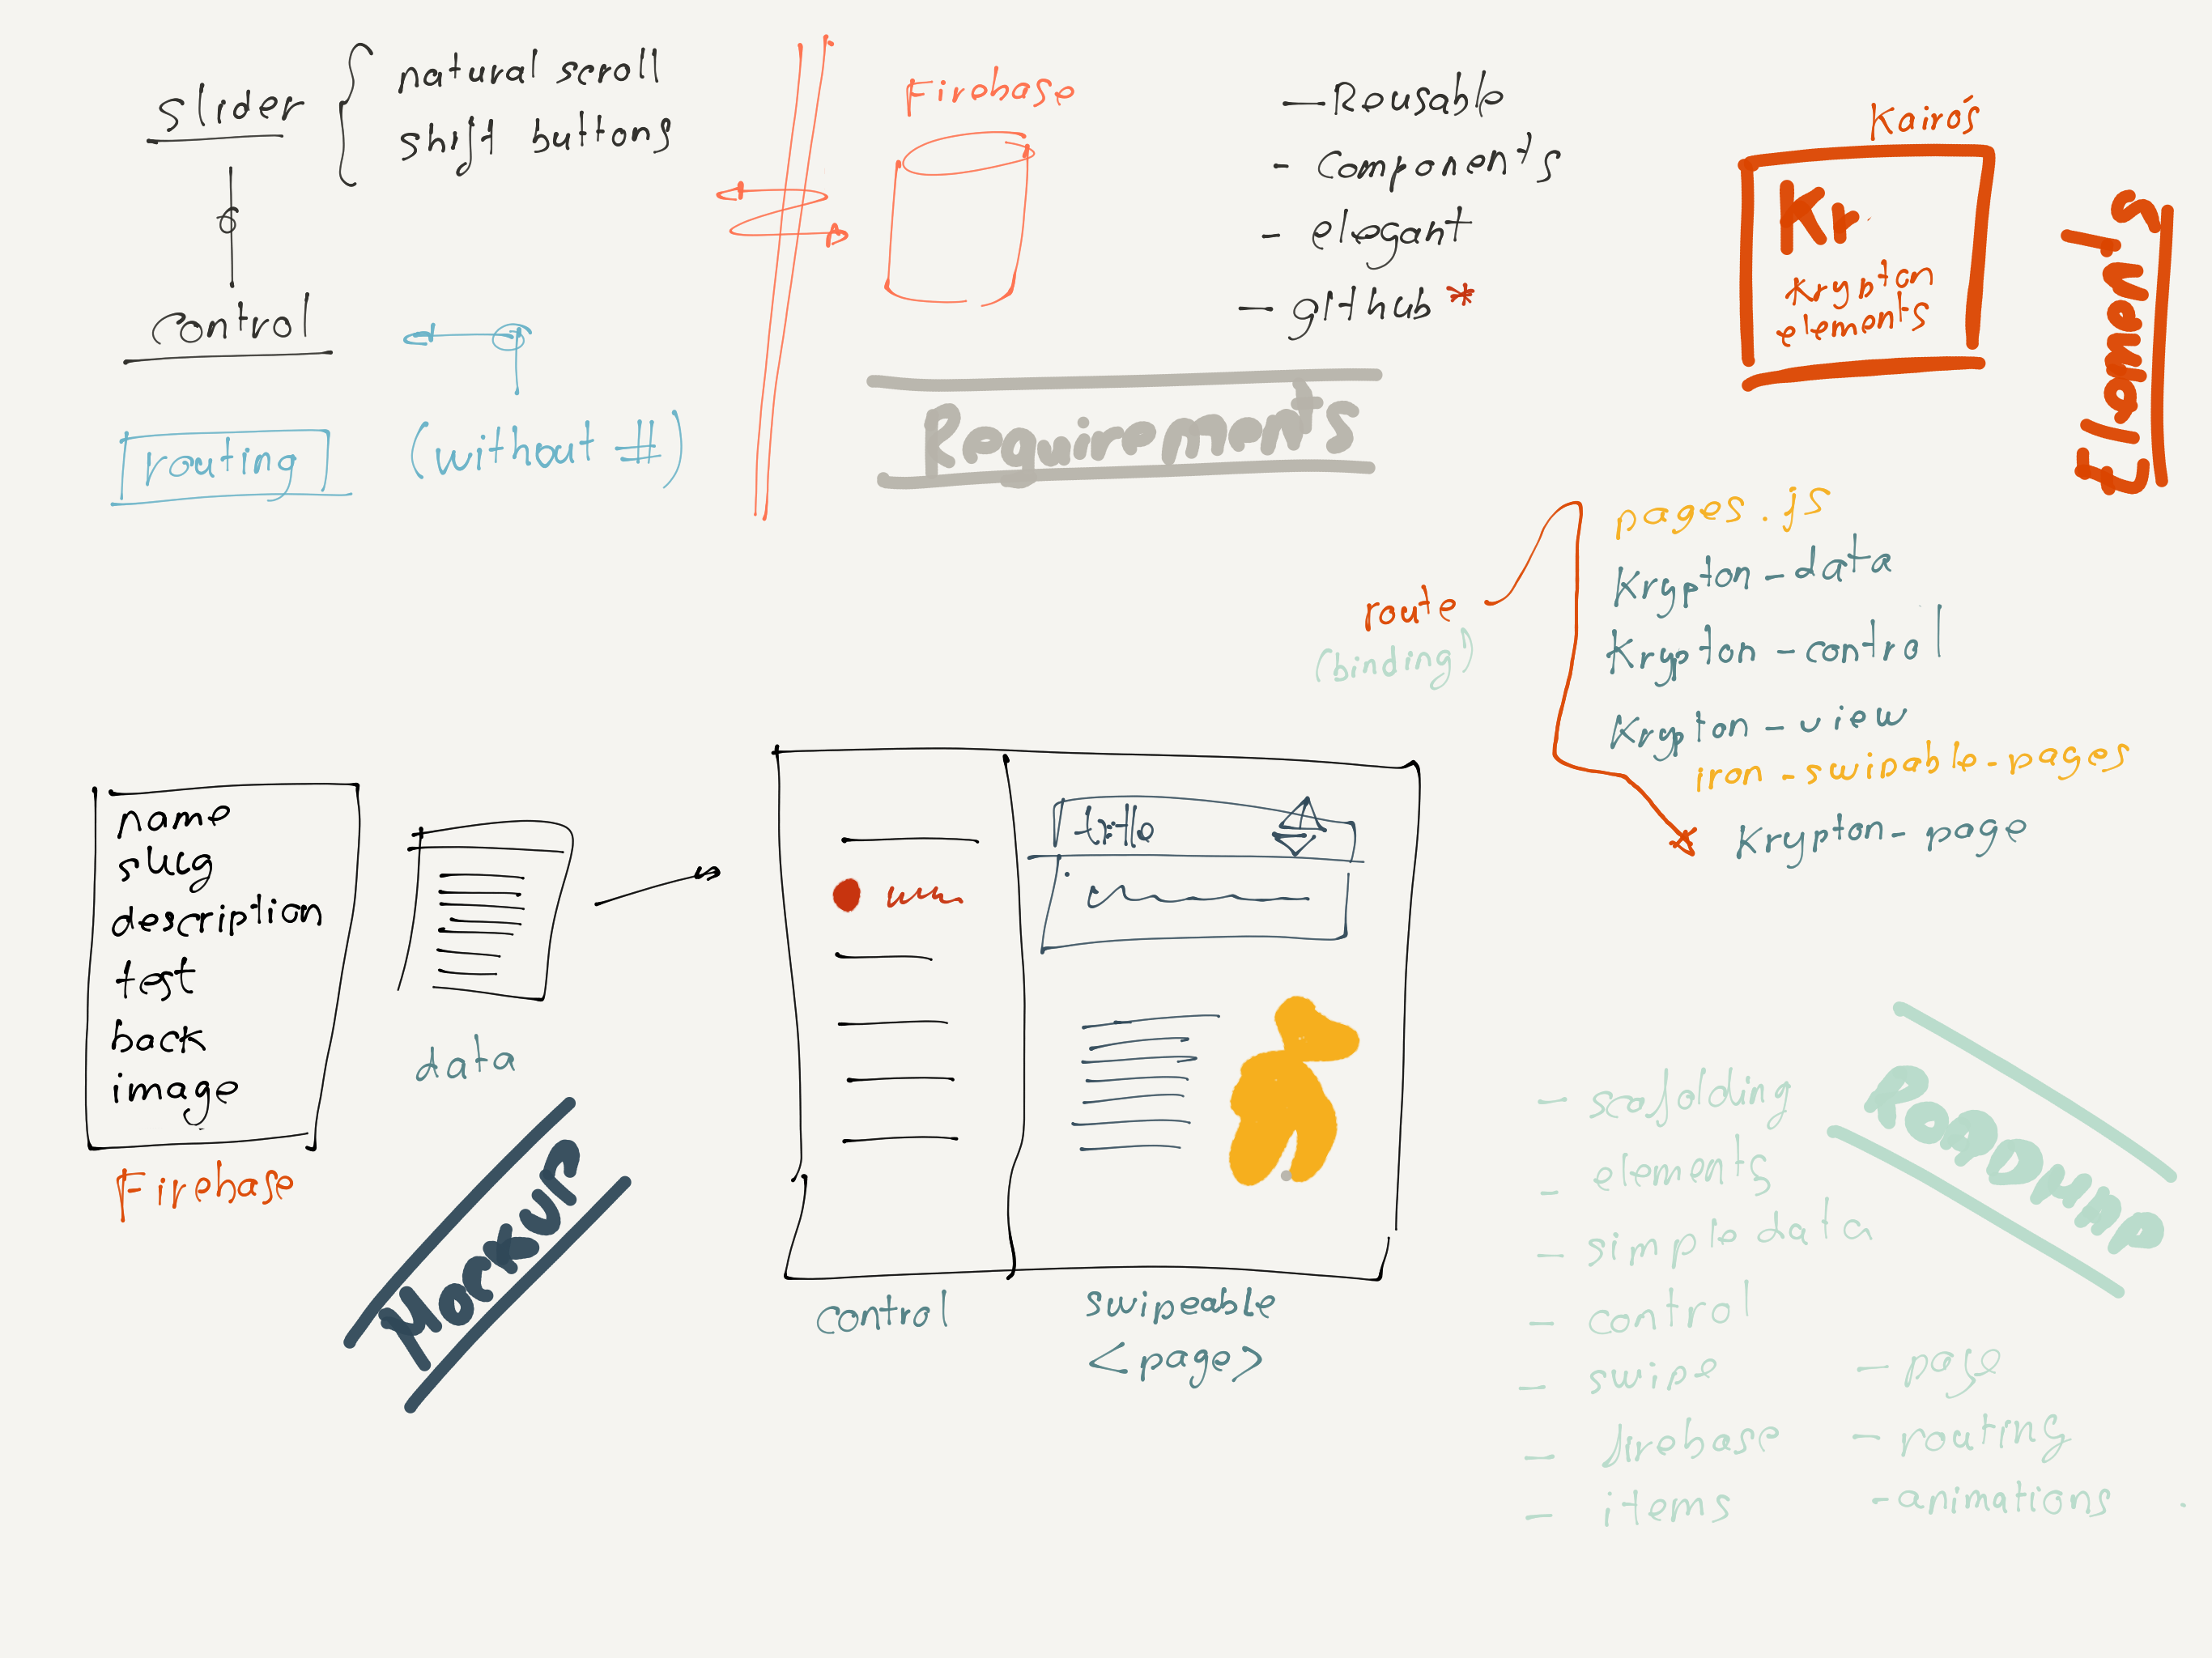 slider
natural scroll
shift buttons
control
routing
(without #)
Firebase
- Reusable
- components
- elegant
- github *
Requirements
Kairós
Kr
Krypton
elements
</elements>
route
(binding)
pages.js
Krypton-data
Krypton-control
Krypton-view
iron-swipable-pages
Krypton-page
name
slug
description
test
back
image
Firebase
data
Mockup
title
control
swipeable
<page>
Roadmap
- scafolding
- elements
- simple data
- control
- swipe
- firebase
- items
- page
- routing
- animations